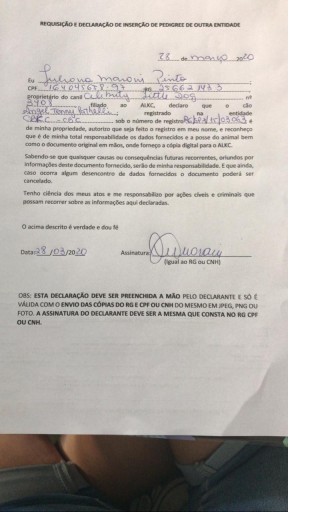 REQUISIÇÃO E DECLARAÇÃO DE INSERÇÃO DE PEDIGREE DE OUTRA ENTIDADE
28 de março 2020
Eu Juliana Pinto
CPF RG
proprietário do canil Celebrity Little Dog nº
filiado ao ALKC, declaro que o cão
registrado na entidade
CBKC - sob o número de registro é
de minha propriedade, autorizo que seja feito o registro em meu nome, e reconheço
que é de minha total responsabilidade os dados fornecidos e a posse do animal bem
como o documento original em mãos, onde forneço a cópia digital para o ALKC.
Sabendo-se que quaisquer causas ou consequências futuras recorrentes, oriundos por
informações deste documento fornecido, serão de minha responsabilidade. E que ainda,
caso ocorra algum desencontro de dados fornecidos o documento poderá ser
cancelado.
Tenho ciência dos meus atos e me responsabilizo por ações cíveis e criminais que
possam recorrer sobre as informações aqui declaradas.
O acima descrito é verdade e dou fé
Data: 28/03/2020 Assinatura:
(Igual ao RG ou CNH)
OBS: ESTA DECLARAÇÃO DEVE SER PREENCHIDA A MÃO PELO DECLARANTE E SÓ É
VÁLIDA COM O ENVIO DAS CÓPIAS DO RG E CPF OU CNH DO MESMO EM JPEG, PNG OU
FOTO. A ASSINATURA DO DECLARANTE DEVE SER A MESMA QUE CONSTA NO RG CPF
OU CNH.